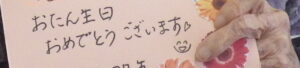 おたん生日
おめでとうございます